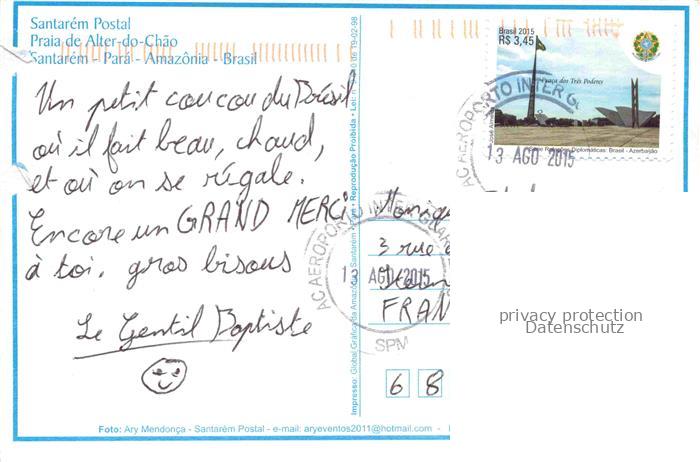 Santarém Postal
Praia de Alter-do-Chão
Santarém - Pará - Amazônia - Brasil
Un petit coucou du Brésil
où il fait beau, chaud,
et où on se régale.
Encore un GRAND MERCI
à toi. gros bisous
Le Gentil Baptiste
Foto: Ary Mendonça - Santarém Postal - e-mail: aryeventos2011@hotmail.com -
Impresso: Global Gráfica da Amazônia Santarém
Reprodução Proibida • Lei: n
de 19-02-98
Brasil 2015
R$ 3,45
Praça dos Três Poderes
Relações Diplomáticas: Brasil - Azerbaijão
AC AEROPORTO INTER G
13 AGO 2015
AC AEROPORTO INTER GUAR
13 AGO 2015
SPM
3 rue
FRAN
6 8
privacy protection
Datenschutz